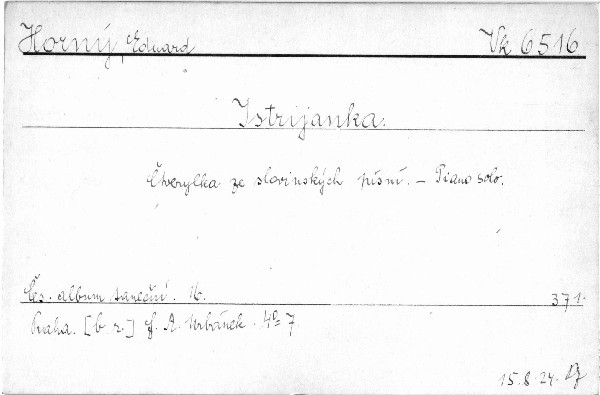 Horný, Eduard Vk 6516
Istrijanka.
Čtverylka ze slovinských písní. - Piano solo.
Čes. album taneční. 16. 371.
Praha. [b r.] F. A. Urbánek. 4º 7.
15.8.24.